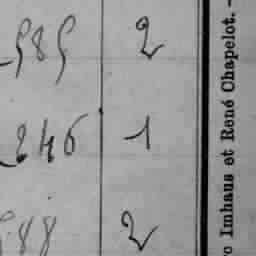 585 2
246 1
88 2
Imhaus et René Chapelot. —